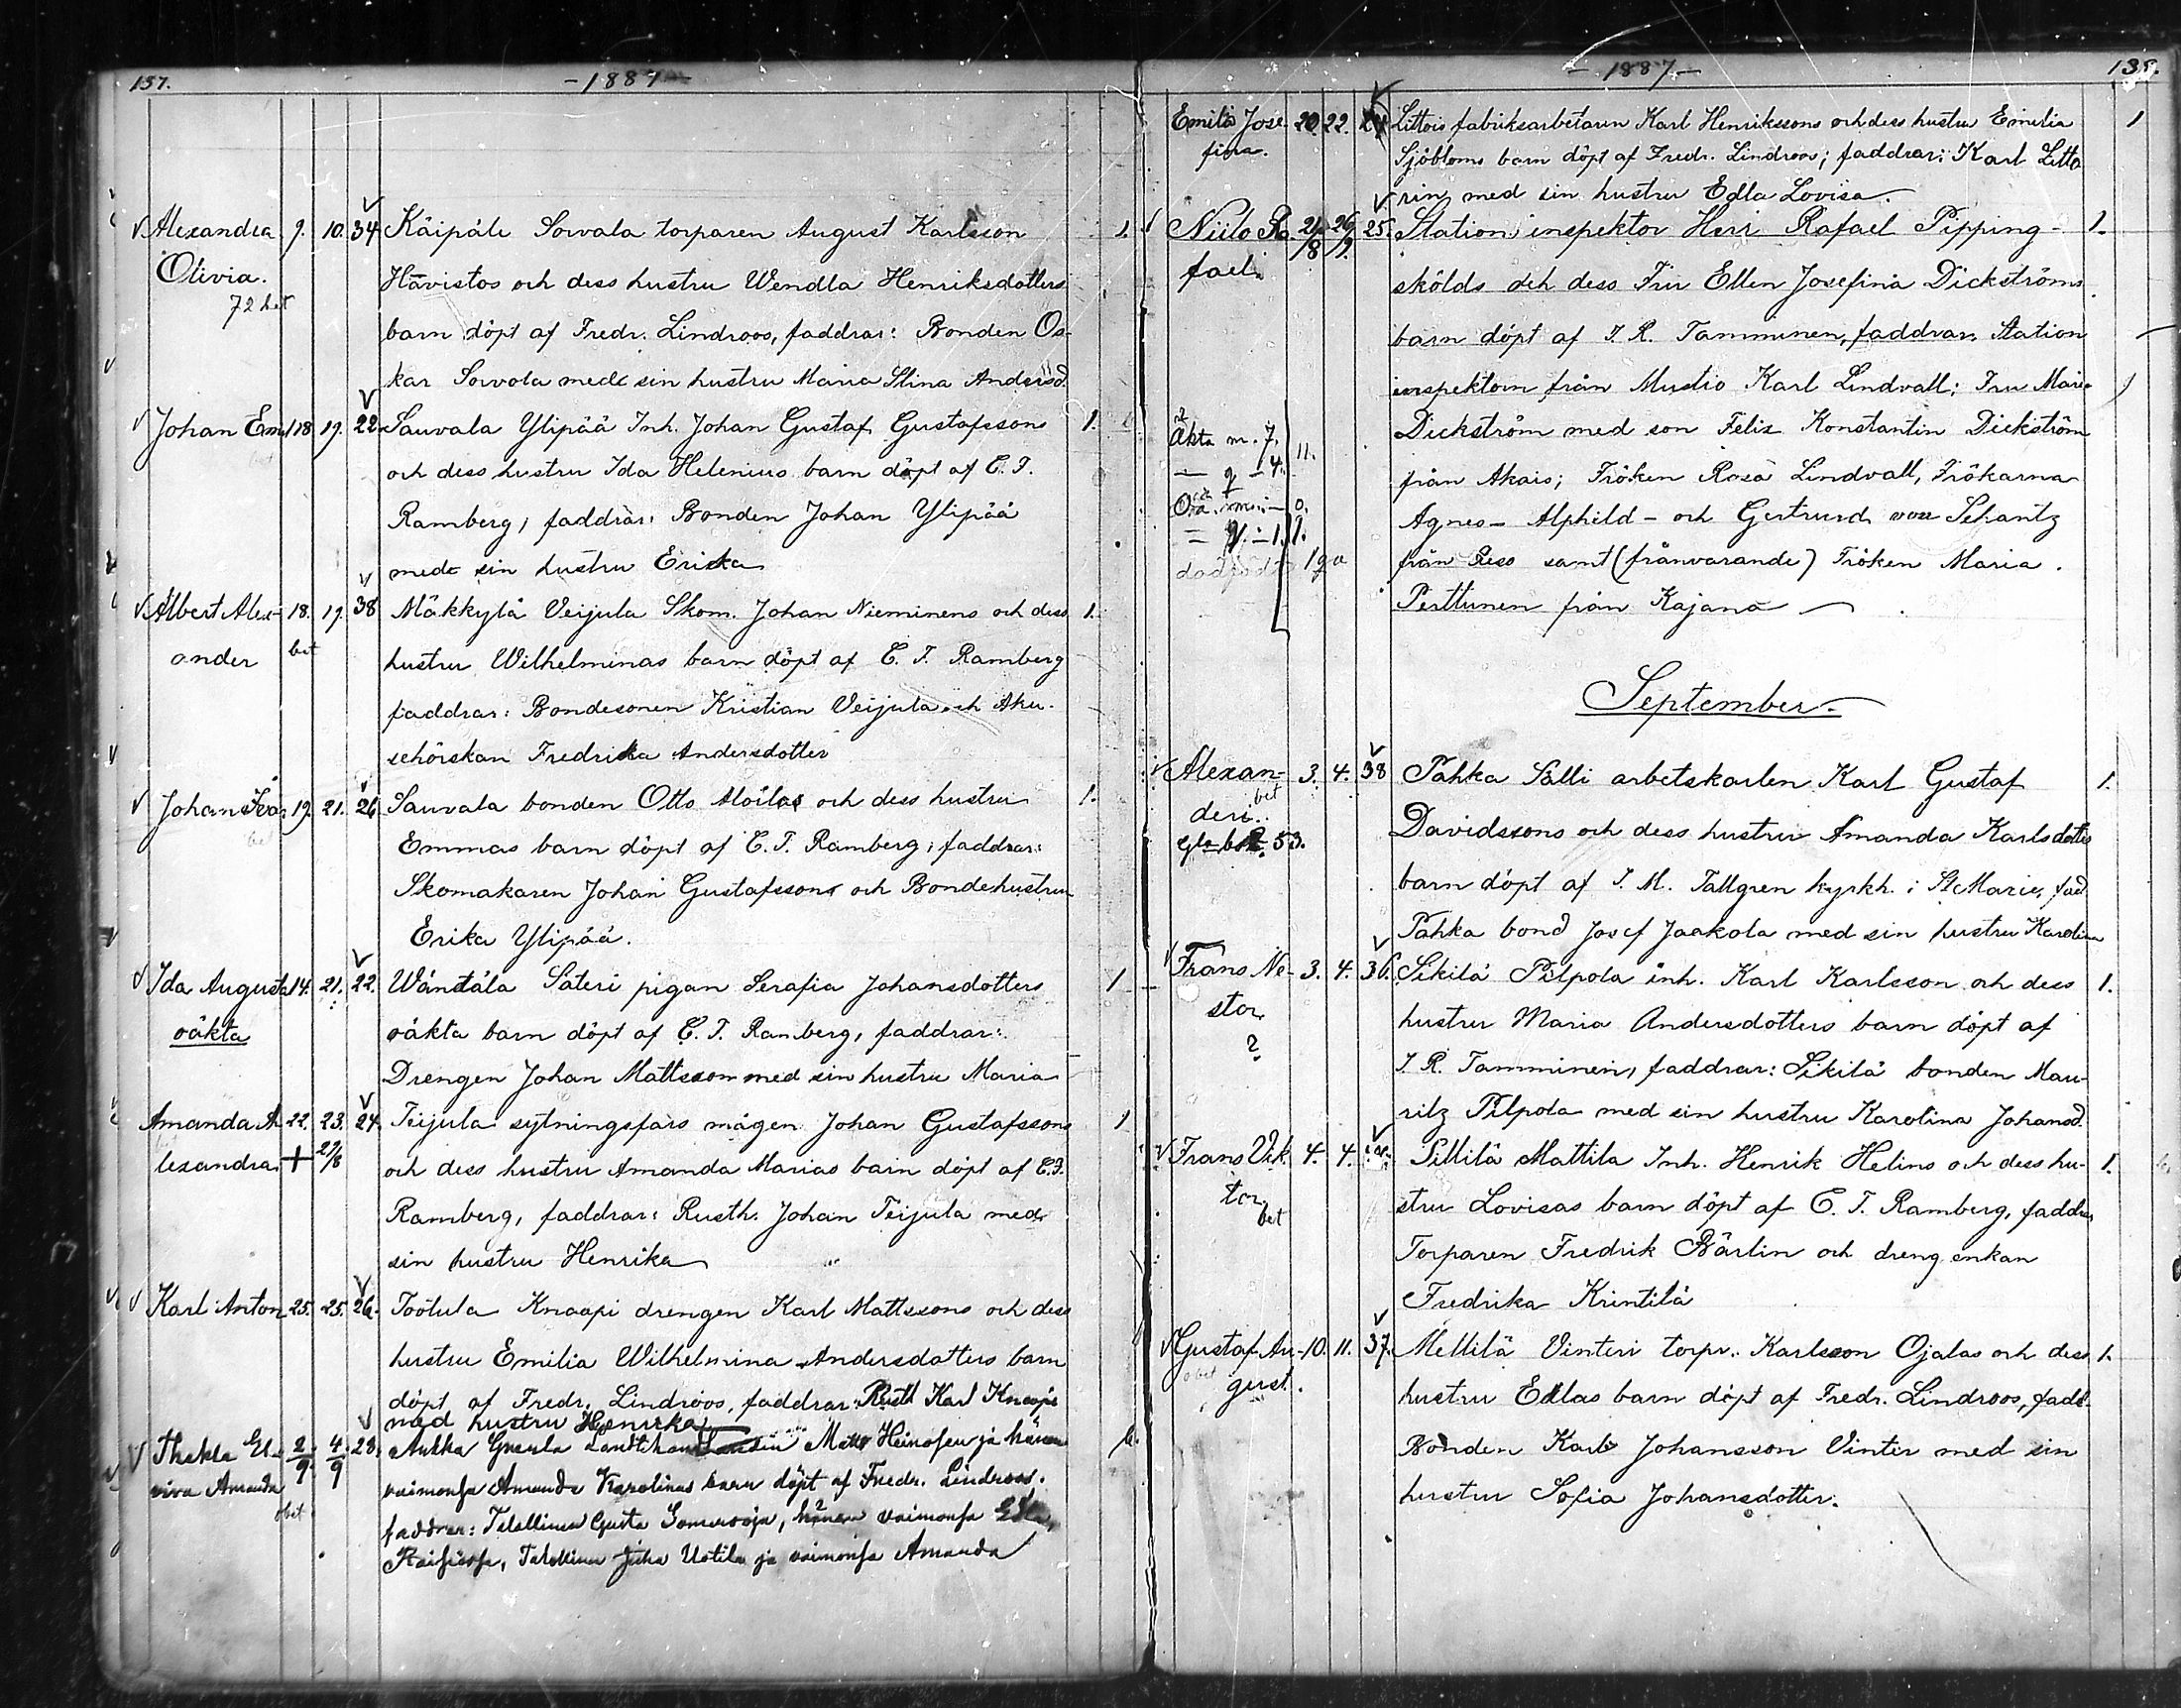 137.
- 1887 -
Alexandra 9. 10. 34 Käipälä Sorvala torparen August Karlsson
Olivia. Hävistos och dess hustru Wendla Henriksdotters
72 bet
barn döpt af Fredr. Lindroos, faddrar: Bonden Os-
kar Sorvola med sin hustru Maria Stina Andersd.
Johan Em 18 19. 22. Sauvala Ylipää Inh. Johan Gustaf Gustafssons 1.
och dess hustru Ida Helenius barn döpt af C. T.
Ramberg, faddrar: Bonden Johan Ylipää
med sin hustru Ericka
Albert Alex- 18. 19. 38 Mäkkylä Veijula Skom. Johan Nieminens och dess 1.
ander bet hustru Wilhelminas barn döpt af C. T. Ramberg
faddrar: Bondesonen Kristian Veijula och Aku-
schörskan Fredrika Andersdotter
Johan 19. 21. 26 Sauvala bonden Otto Aloilas och dess hustru 1.
Emmas barn döpt af C. T. Ramberg, faddrar:
Skomakaren Johan Gustafssons och Bondehustrun
Erika Ylipää.
Ida Augusta 14. 21. 22. Wäntälä Säteri pigan Serafia Johansdotters 1
oäkta oäkta barn döpt af C. T. Ramberg, faddrar:
Drengen Johan Mattsson med sin hustru Maria
Amanda A 22. 23. 24. Teijula sytningsfars mågen Johan Gustafssons 1
lexandra + 27/8 och dess hustru Amanda Marias barn döpt af C.T.
Ramberg, faddrar: Rusth. Johan Teijula med
sin hustru Henrika
Karl Anton 25. 25. 26. Töötula Knaapi drengen Karl Mattssons och dess
hustru Emilia Wilhelmina Andersdotters barn
döpt af Fredr. Lindroos, faddrar: Rusth Karl Knaapi
med hustru Henrika
Thekla El- 2/9. 4/9 28. Aulha Matts Heinosen ja hänen
viira Amanda vaimonsa Amanda Karolinas barn döpt af Fredr. Lindroos.
obet faddrar: Talollinen Gusta Somersoja, hänen vaimonsa Edla
Talollinen Juha Uotila ja vaimonsa Amanda
- 1887 -
138.
Emilia Jose- 20 22. 24 Littois fabriksarbetaren Karl Henrikssons och dess hustru Emilia 1
fina. Sjöbloms barn döpt af Fredr. Lindroos; faddrar: Karl Litto
rin med sin hustru Edla Lovisa.
Niilo Ra- 21/8 26/9. 25. Stations inspektor Herr Rafael Pipping- 1.
fael. skölds och dess Fru Ellen Josefina Dickströms
barn döpt af I. R. Tamminen, faddrar: Station
inspektorn från Mustio Karl Lindvall; Fru Maria
Äkta m. 7. Dickström med son Felix Konstantin Dickström
— q - 4. 11. från Akais; Fröken Rosa Lindvall, Frökarna
Oä. m. — 0. Agnes - Alphild - och Gertrud von Schantz
= q. - 1. 1.
dödfödt 1 qu från Reso samt (frånvarande) Fröken Maria
Perttunen från Kajana
September.
Alexan- 3. 4. 38 Pahka Sälli arbetskarlen Karl Gustaf 1.
bet
deri. Davidssons och dess hustru Amanda Karlsdotters
53. barn döpt af I. M. Tallgren kyrkh. i St Marie, fad.
Pahka bond Josef Jaakola med sin hustru Karolina
Frans Ne- 3. 4. 36. Sikilä Pilpola inh. Karl Karlsson och dess 1.
stor hustru Maria Andersdotters barn döpt af
? I. R. Tamminen, faddrar: Sikilä bonden Mau-
ritz Pilpola med sin hustru Karolina Johansd.
Frans Vik 4. 4. Pillilä Mattila Inh. Henrik Helins och dess hu- 1.
tor bet stru Lovisas barn döpt af C. T. Ramberg, faddrar
Torparen Fredrik Bärlin och dreng enkan
Fredrika Krintilä
Gustaf Au- 10. 11. 37. Mellilä Vinteri torp. Karlsson Ojalas och dess 1.
obet
gust. hustru Edlas barn döpt af Fredr. Lindroos, fadd.
Bonden Karl Johansson Vinter med sin
hustru Sofia Johansdotter.